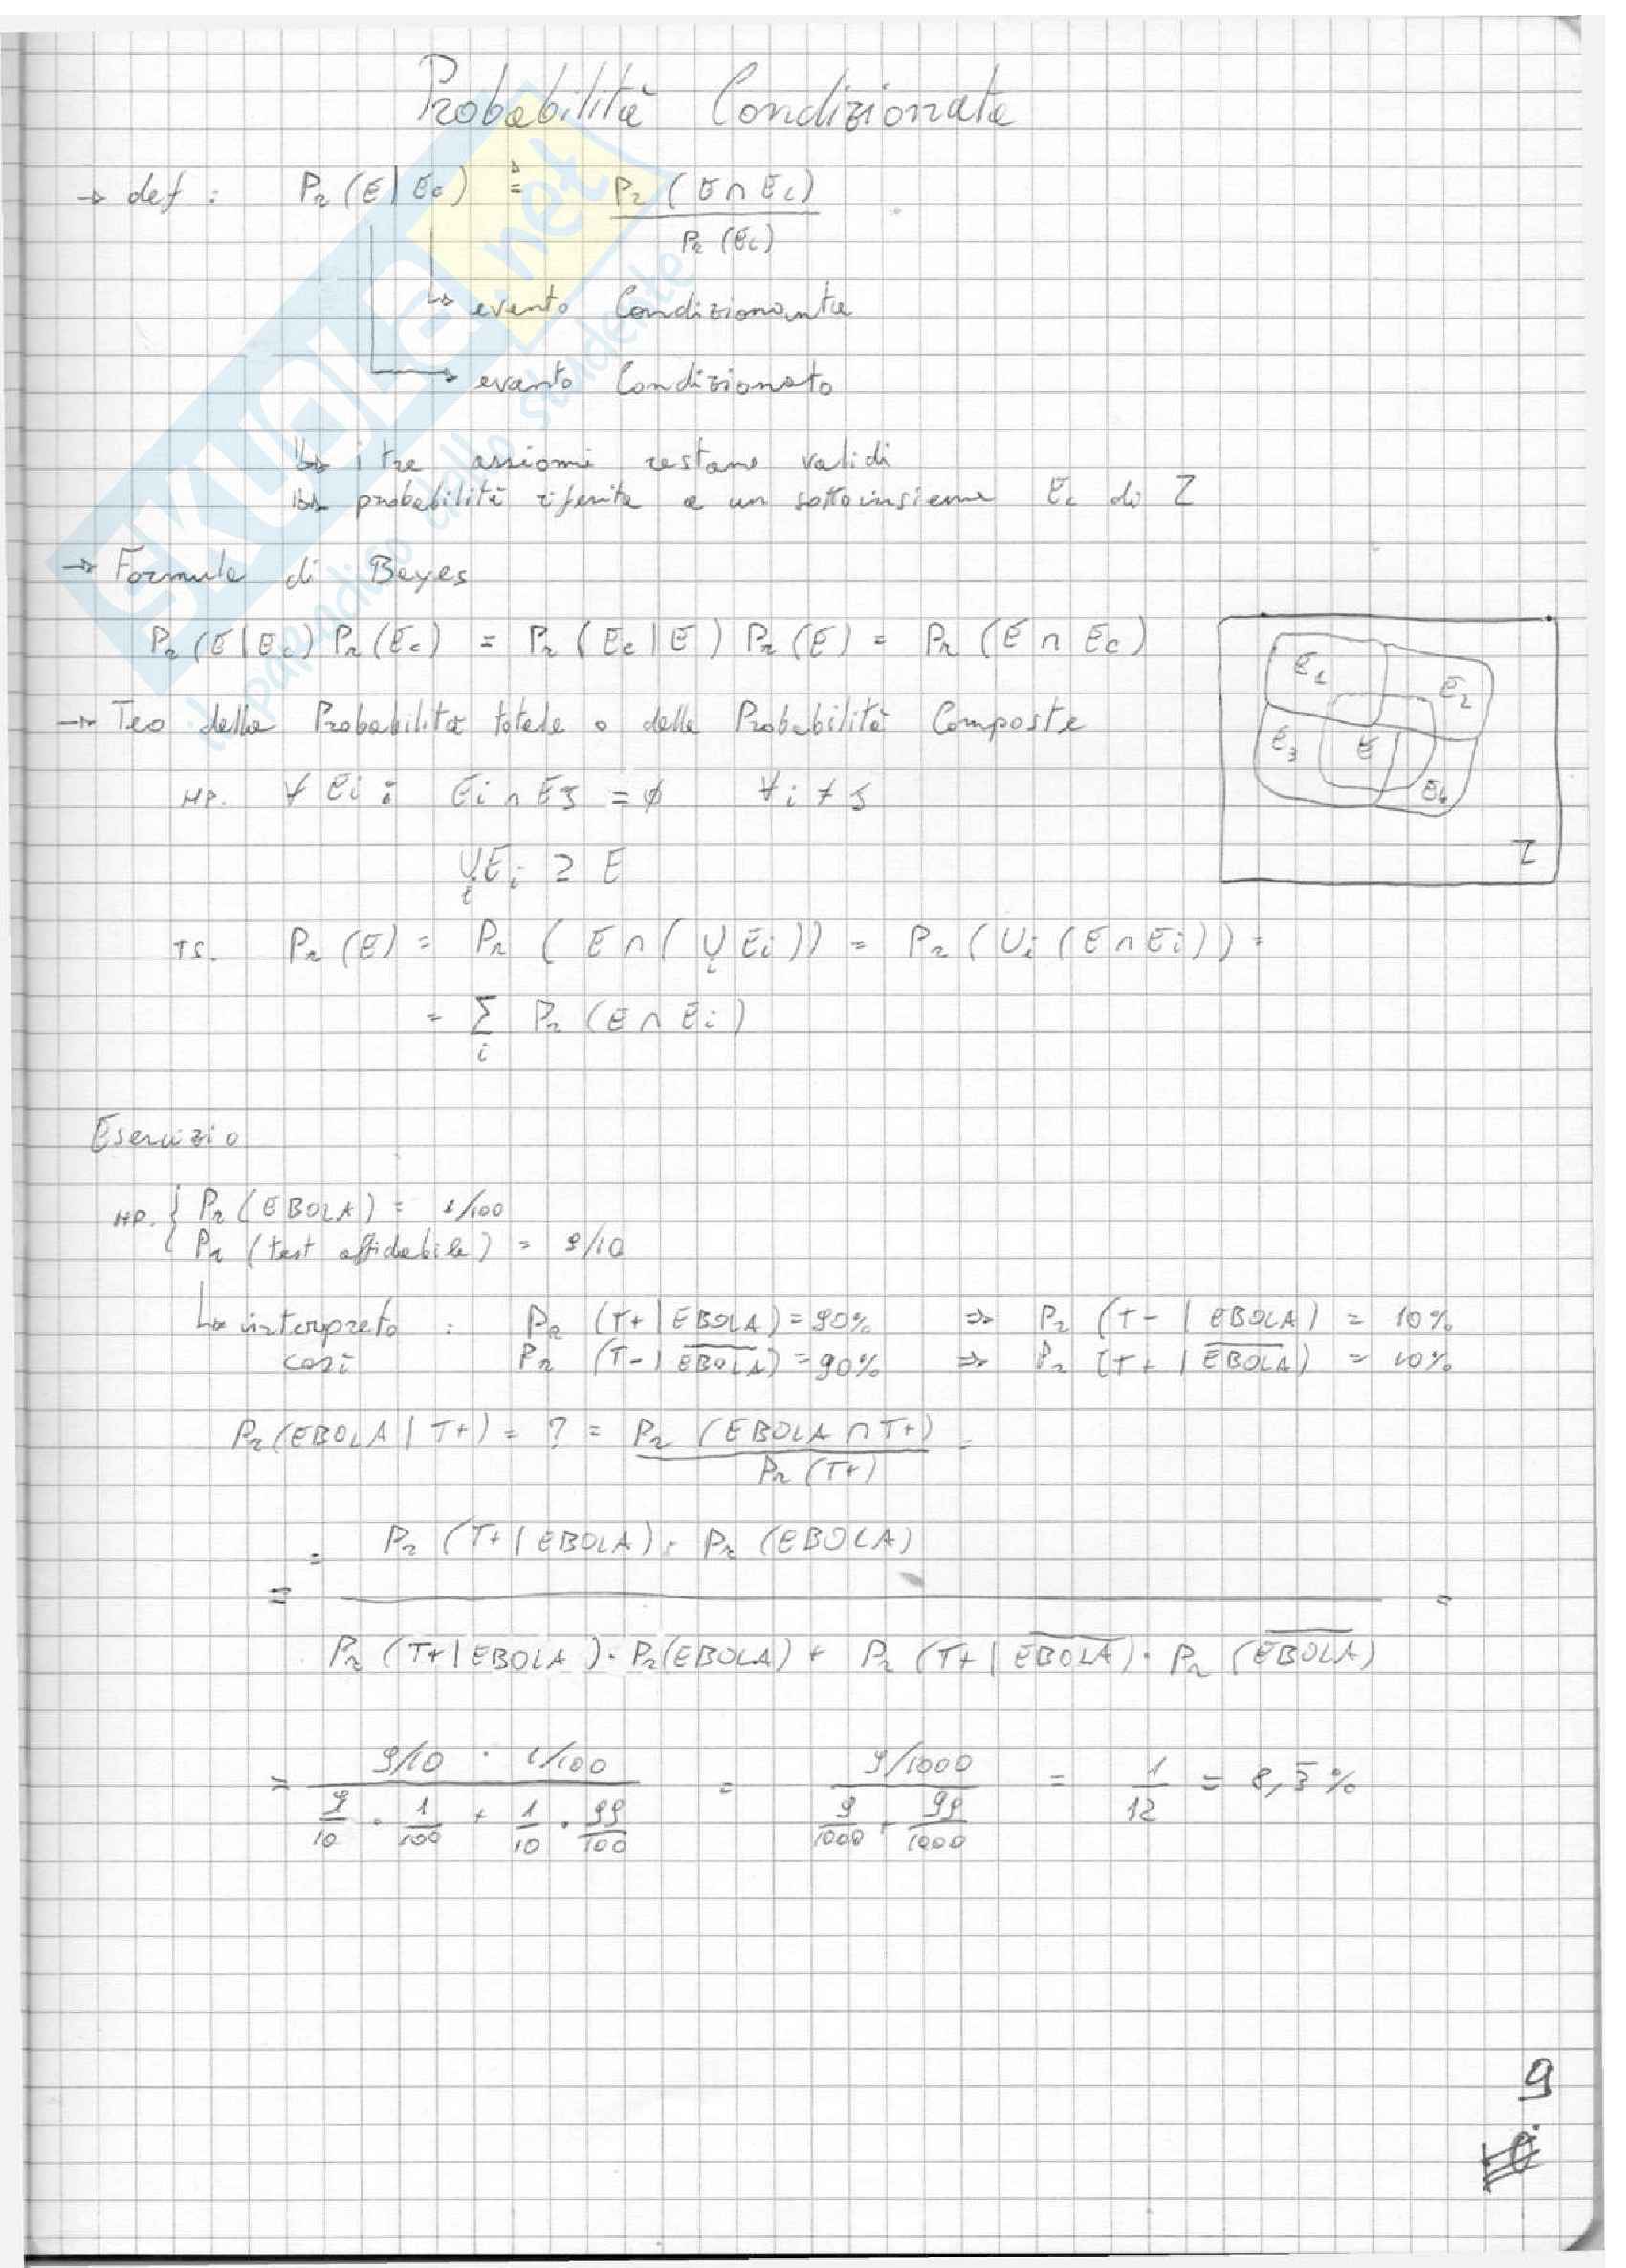 Probabilità Condizionata
→ def : Pr (E | Ec) ≜ Pr (E ∩ Ec) / Pr (Ec)
↳ evento Condizionante
↳ evento Condizionato
↳ i tre assiomi restano validi
↳ probabilità riferite a un sottoinsieme Ec di I
→ Formula di Bayes
Pr (E | Ec) Pr (Ec) = Pr (Ec | E) Pr (E) = Pr (E ∩ Ec)
E1 E2
E3 E E4
I
→ Teo della Probabilità totale o delle Probabilità Composte
HP. ∀ Ei : Ei ∩ Ej = ∅ ∀ i ≠ j
∪i Ei ⊇ E
TS. Pr (E) = Pr (E ∩ (∪i Ei)) = Pr (∪i (E ∩ Ei)) =
= ∑i Pr (E ∩ Ei)
Esercizio
HP. { Pr (EBOLA) = 1/100
Pr (test affidabile) = 9/10
↳ interpreto : Pr (T+ | EBOLA) = 90% ⇒ Pr (T- | EBOLA) = 10%
così Pr (T- | E̅B̅O̅L̅A̅) = 90% ⇒ Pr (T+ | E̅B̅O̅L̅A̅) = 10%
Pr (EBOLA | T+) = ? = Pr (EBOLA ∩ T+) / Pr (T+) =
= Pr (T+ | EBOLA) · Pr (EBOLA)
= =
Pr (T+ | EBOLA) · Pr (EBOLA) + Pr (T+ | E̅B̅O̅L̅A̅) · Pr (E̅B̅O̅L̅A̅)
= 9/10 · 1/100 = 9/1000 = 1/12 = 8,3̅ %
9/10 · 1/100 + 1/10 · 99/100 9/1000 + 99/1000
9
SKUOLA.net
il paradiso dello studente